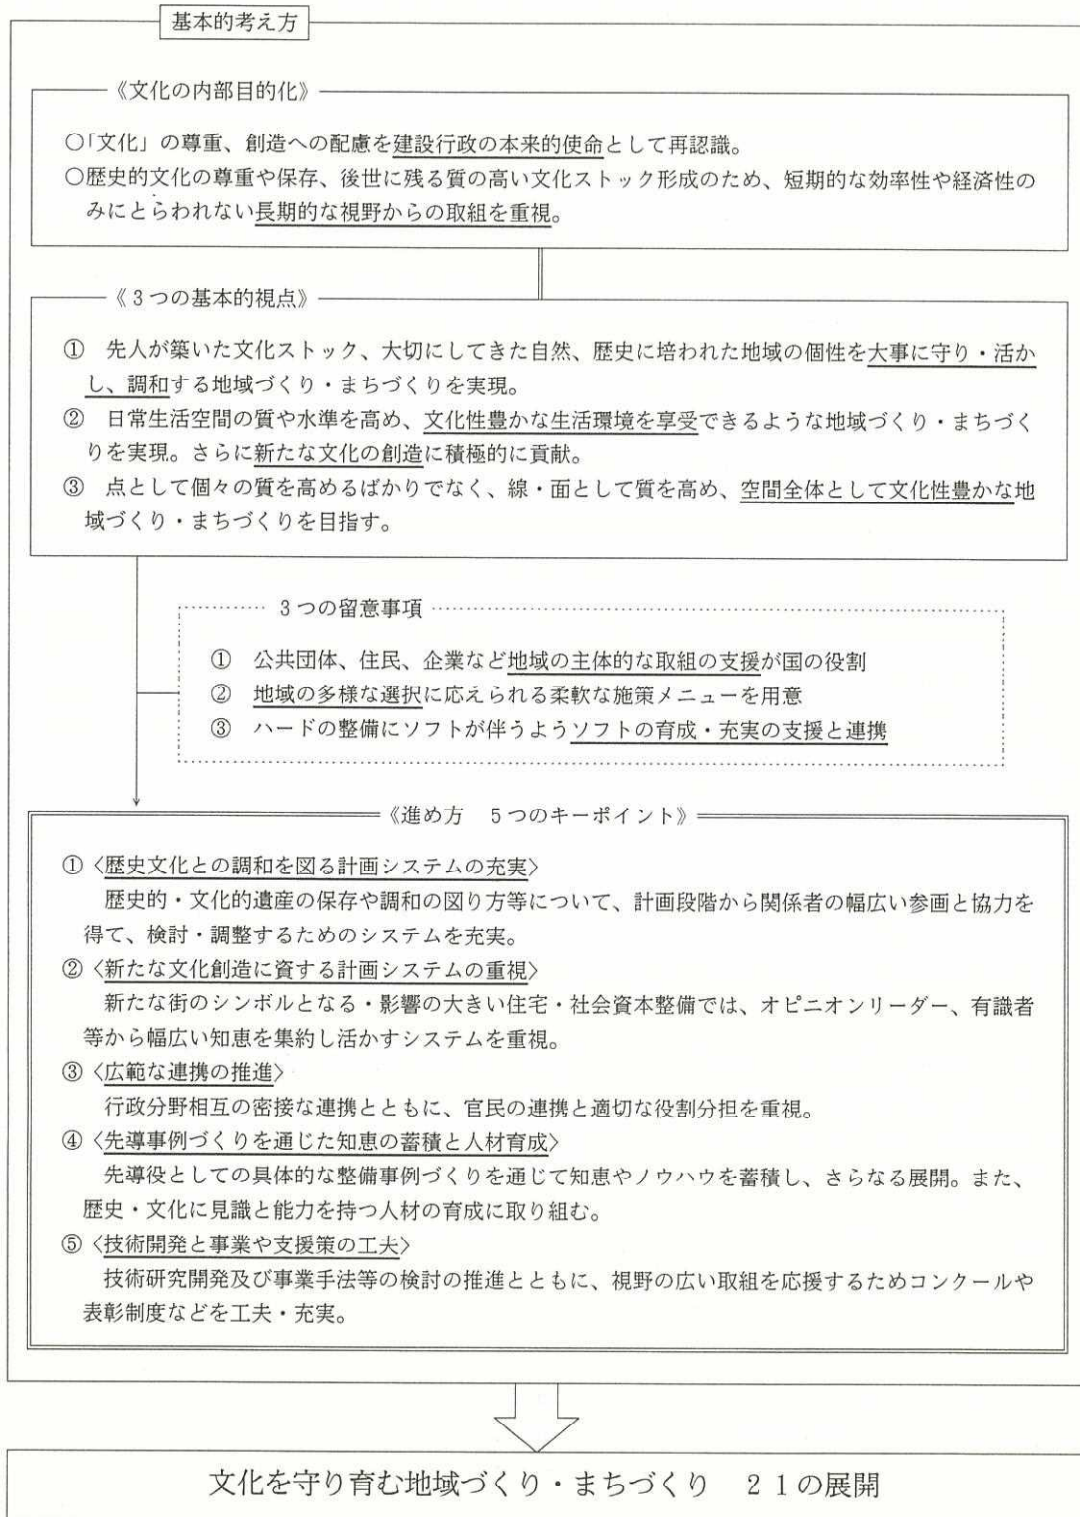 基本的考え方
《文化の内部目的化》
○「文化」の尊重、創造への配慮を建設行政の本来的使命として再認識。
○歴史的文化の尊重や保存、後世に残る質の高い文化ストック形成のため、短期的な効率性や経済性の
みにとらわれない長期的な視野からの取組を重視。
《3つの基本的視点》
① 先人が築いた文化ストック、大切にしてきた自然、歴史に培われた地域の個性を大事に守り・活か
し、調和する地域づくり・まちづくりを実現。
② 日常生活空間の質や水準を高め、文化性豊かな生活環境を享受できるような地域づくり・まちづく
りを実現。さらに新たな文化の創造に積極的に貢献。
③ 点として個々の質を高めるばかりでなく、線・面として質を高め、空間全体として文化性豊かな地
域づくり・まちづくりを目指す。
3つの留意事項
① 公共団体、住民、企業など地域の主体的な取組の支援が国の役割
② 地域の多様な選択に応えられる柔軟な施策メニューを用意
③ ハードの整備にソフトが伴うようソフトの育成・充実の支援と連携
《進め方 5つのキーポイント》
①〈歴史文化との調和を図る計画システムの充実〉
歴史的・文化的遺産の保存や調和の図り方等について、計画段階から関係者の幅広い参画と協力を
得て、検討・調整するためのシステムを充実。
②〈新たな文化創造に資する計画システムの重視〉
新たな街のシンボルとなる・影響の大きい住宅・社会資本整備では、オピニオンリーダー、有識者
等から幅広い知恵を集約し活かすシステムを重視。
③〈広範な連携の推進〉
行政分野相互の密接な連携とともに、官民の連携と適切な役割分担を重視。
④〈先導事例づくりを通じた知恵の蓄積と人材育成〉
先導役としての具体的な整備事例づくりを通じて知恵やノウハウを蓄積し、さらなる展開。また、
歴史・文化に見識と能力を持つ人材の育成に取り組む。
⑤〈技術開発と事業や支援策の工夫〉
技術研究開発及び事業手法等の検討の推進とともに、視野の広い取組を応援するためコンクールや
表彰制度などを工夫・充実。
文化を守り育む地域づくり・まちづくり 21の展開